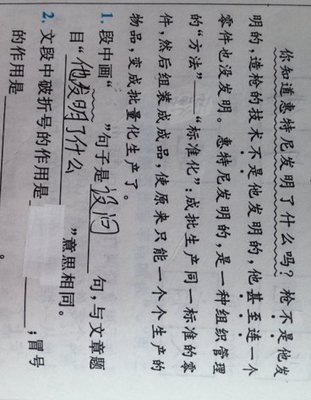 你知道惠特尼发明了什么吗？枪不是他发
明的，造枪的技术不是他发明的，他甚至连一个
零件也没发明。惠特尼发明的，是一种组织管理
的“方法”——“标准化”：成批生产同一标准的零
件，然后组装成成品，使原来只能一个个生产的
物品，变成批量化生产了。
1. 段中画“ ”句子是设问句，与文章题
目“他发明了什么”意思相同。
2. 文段中破折号的作用是；冒号
的作用是。